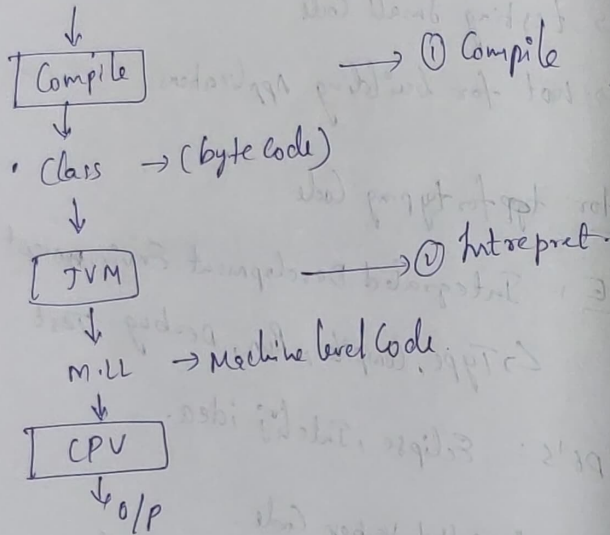 Compile → ① Compile
. Class → (byte code)
JVM → ② Intrepret.
M.LL → Machine level Code.
CPU
O/P